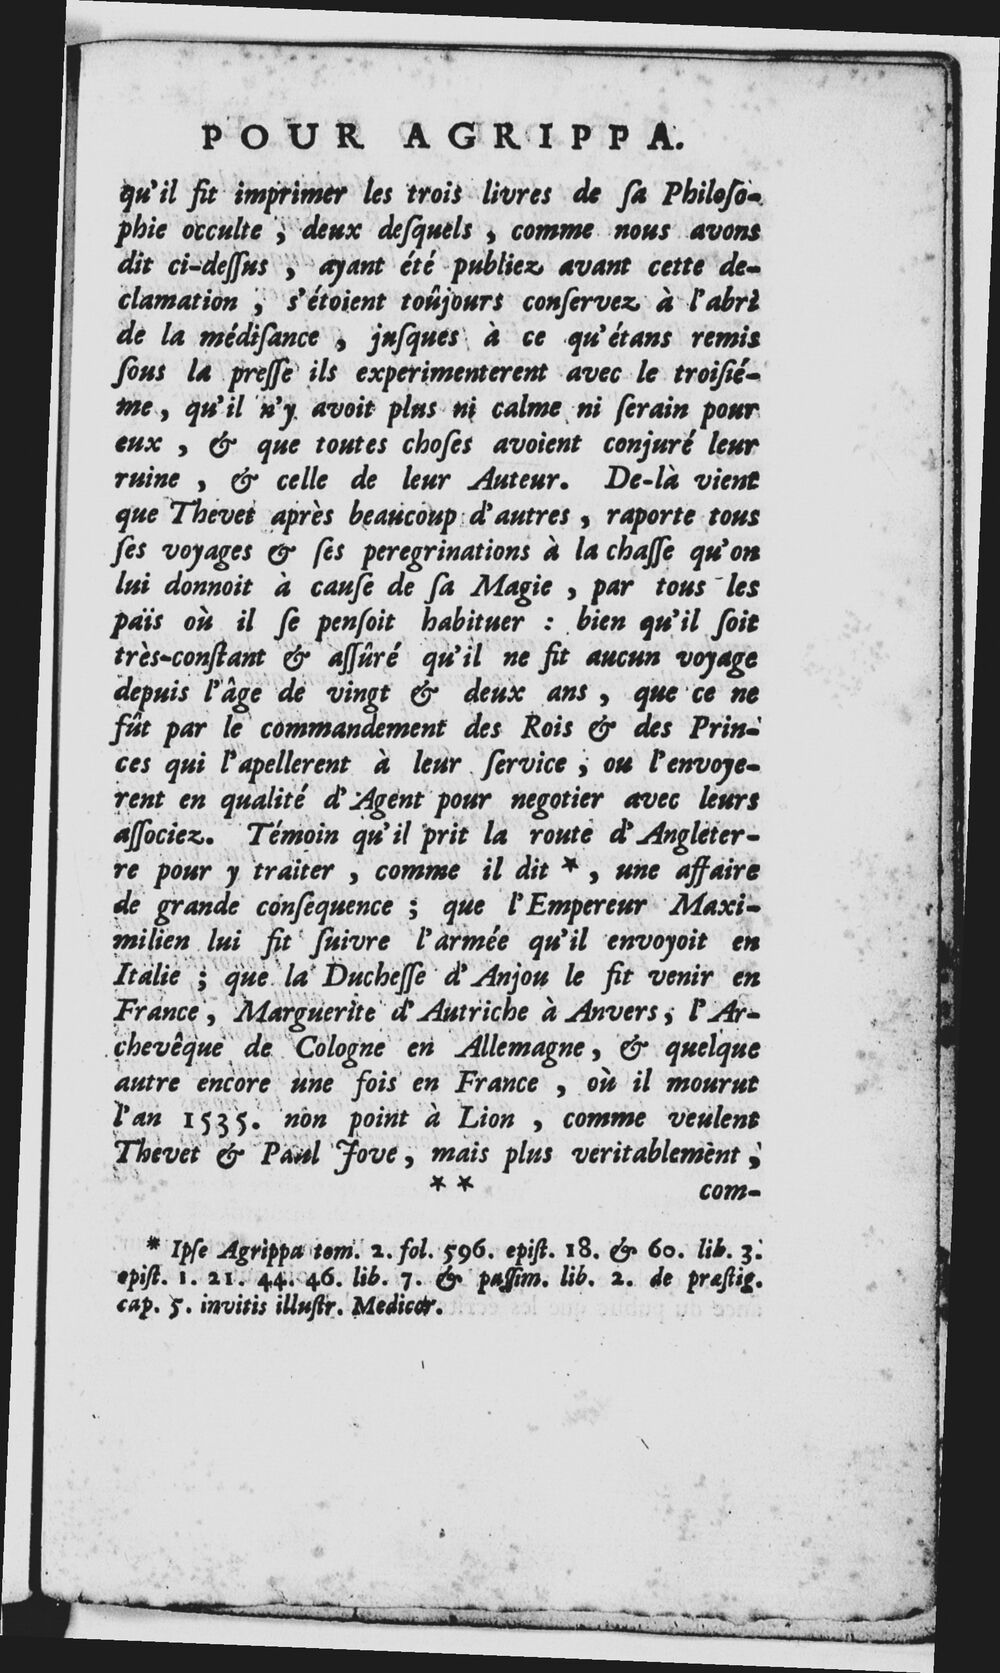 POUR AGRIPPA.
qu'il fit imprimer les trois livres de ſa Philoſo-
phie occulte, deux deſquels, comme nous avons
dit ci-deſſus, ayant été publiez avant cette de-
clamation, s'étoient toûjours conſervez à l'abri
de la médiſance, juſques à ce qu'étans remis
ſous la preſſe ils experimenterent avec le troiſié-
me, qu'il n'y avoit plus ni calme ni ſerain pour
eux, & que toutes choſes avoient conjuré leur
ruine, & celle de leur Auteur. De-là vient
que Thevet après beaucoup d'autres, raporte tous
ſes voyages & ſes peregrinations à la chaſſe qu'on
lui donnoit à cauſe de ſa Magie, par tous les
païs où il ſe penſoit habituer : bien qu'il ſoit
très-conſtant & aſſûré qu'il ne fit aucun voyage
depuis l'âge de vingt & deux ans, que ce ne
fût par le commandement des Rois & des Prin-
ces qui l'apellerent à leur ſervice, ou l'envoye-
rent en qualité d'Agent pour negotier avec leurs
aſſociez. Témoin qu'il prit la route d'Angleter-
re pour y traiter, comme il dit *, une affaire
de grande conſequence ; que l'Empereur Maxi-
milien lui fit ſuivre l'armée qu'il envoyoit en
Italie ; que la Ducheſſe d'Anjou le fit venir en
France, Marguerite d'Autriche à Anvers, l'Ar-
chevêque de Cologne en Allemagne, & quelque
autre encore une fois en France, où il mourut
l'an 1535. non point à Lion, comme veulent
Thevet & Paul Jove, mais plus veritablement,
* * com-
* Ipſe Agrippa tom. 2. fol. 596. epiſt. 18. & 60. lib. 3.
epiſt. 1. 21. 44. 46. lib. 7. & paſſim. lib. 2. de præſtig.
cap. 5. invitis illuſtr. Medicor.